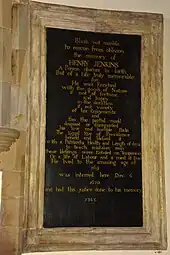 Blush not marble
to rescue from oblivion
the memory of
HENRY JENKINS
A Person obscure in birth,
But of a life truly memorable
for
He was Enriched
with the goods of Nature
if not of Fortune
and happy
in the duration
if not variety
of his Enjoyments
and
tho the partial world
despised or disregarded
his low and humble State
The Equal Eye of Providence
beheld and blessed it
with a Patriarchs Health and Length of days
to teach mistaken man
these blessings were Entailed on Temperance
a life of Labour and a mind at Ease
He lived to the amazing age of
169
was interred here Dec. 6
1670
and had this justice done to his memory
1743